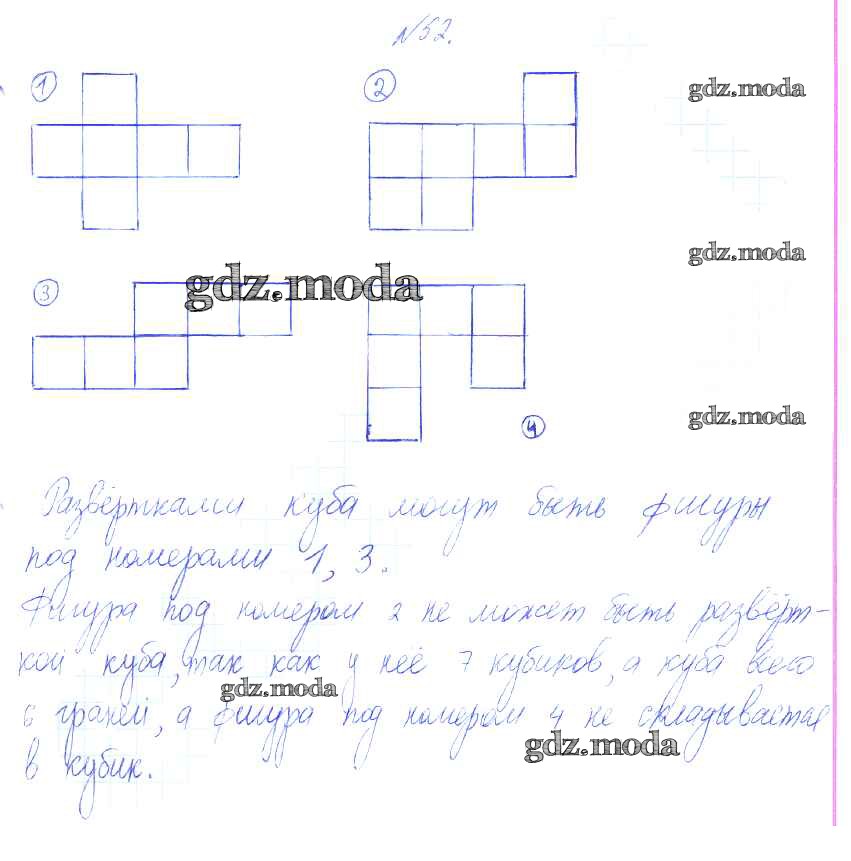 №52.
1 2
gdz.moda
gdz.moda
3 gdz.moda
gdz.moda
4
Развёртками куба могут быть фигуры
под номерами 1, 3.
Фигура под номером 2 не может быть развёрт-
кой куба, так как у неё 7 кубиков, а куба всего
gdz.moda
6 граней, а фигура под номером 4 не складывается
gdz.moda
в кубик.